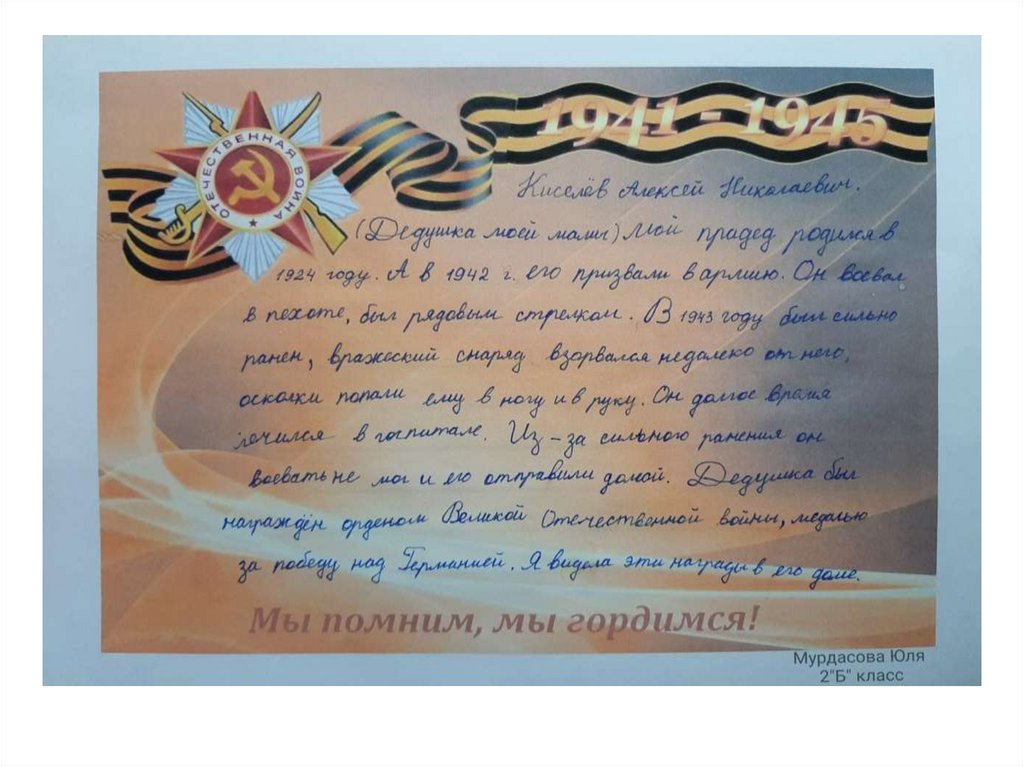 1941 - 1945
ОТЕЧЕСТВЕННАЯ ВОЙНА
Киселёв Алексей Николаевич.
(Дедушка моей мамы) Мой прадед родился в
1924 году. А в 1942 г. его призвали в армию. Он воевал
в пехоте, был рядовым стрелком. В 1943 году был сильно
ранен, вражеский снаряд взорвался недалеко от него,
осколки попали ему в ногу и в руку. Он долгое время
лечился в госпитале. Из-за сильного ранения он
воевать не мог и его отправили домой. Дедушка был
награждён орденом Великой Отечественной войны, медалью
за победу над Германией. Я видела эти награды в его доме.
Мы помним, мы гордимся!
Мурдасова Юля
2"Б" класс